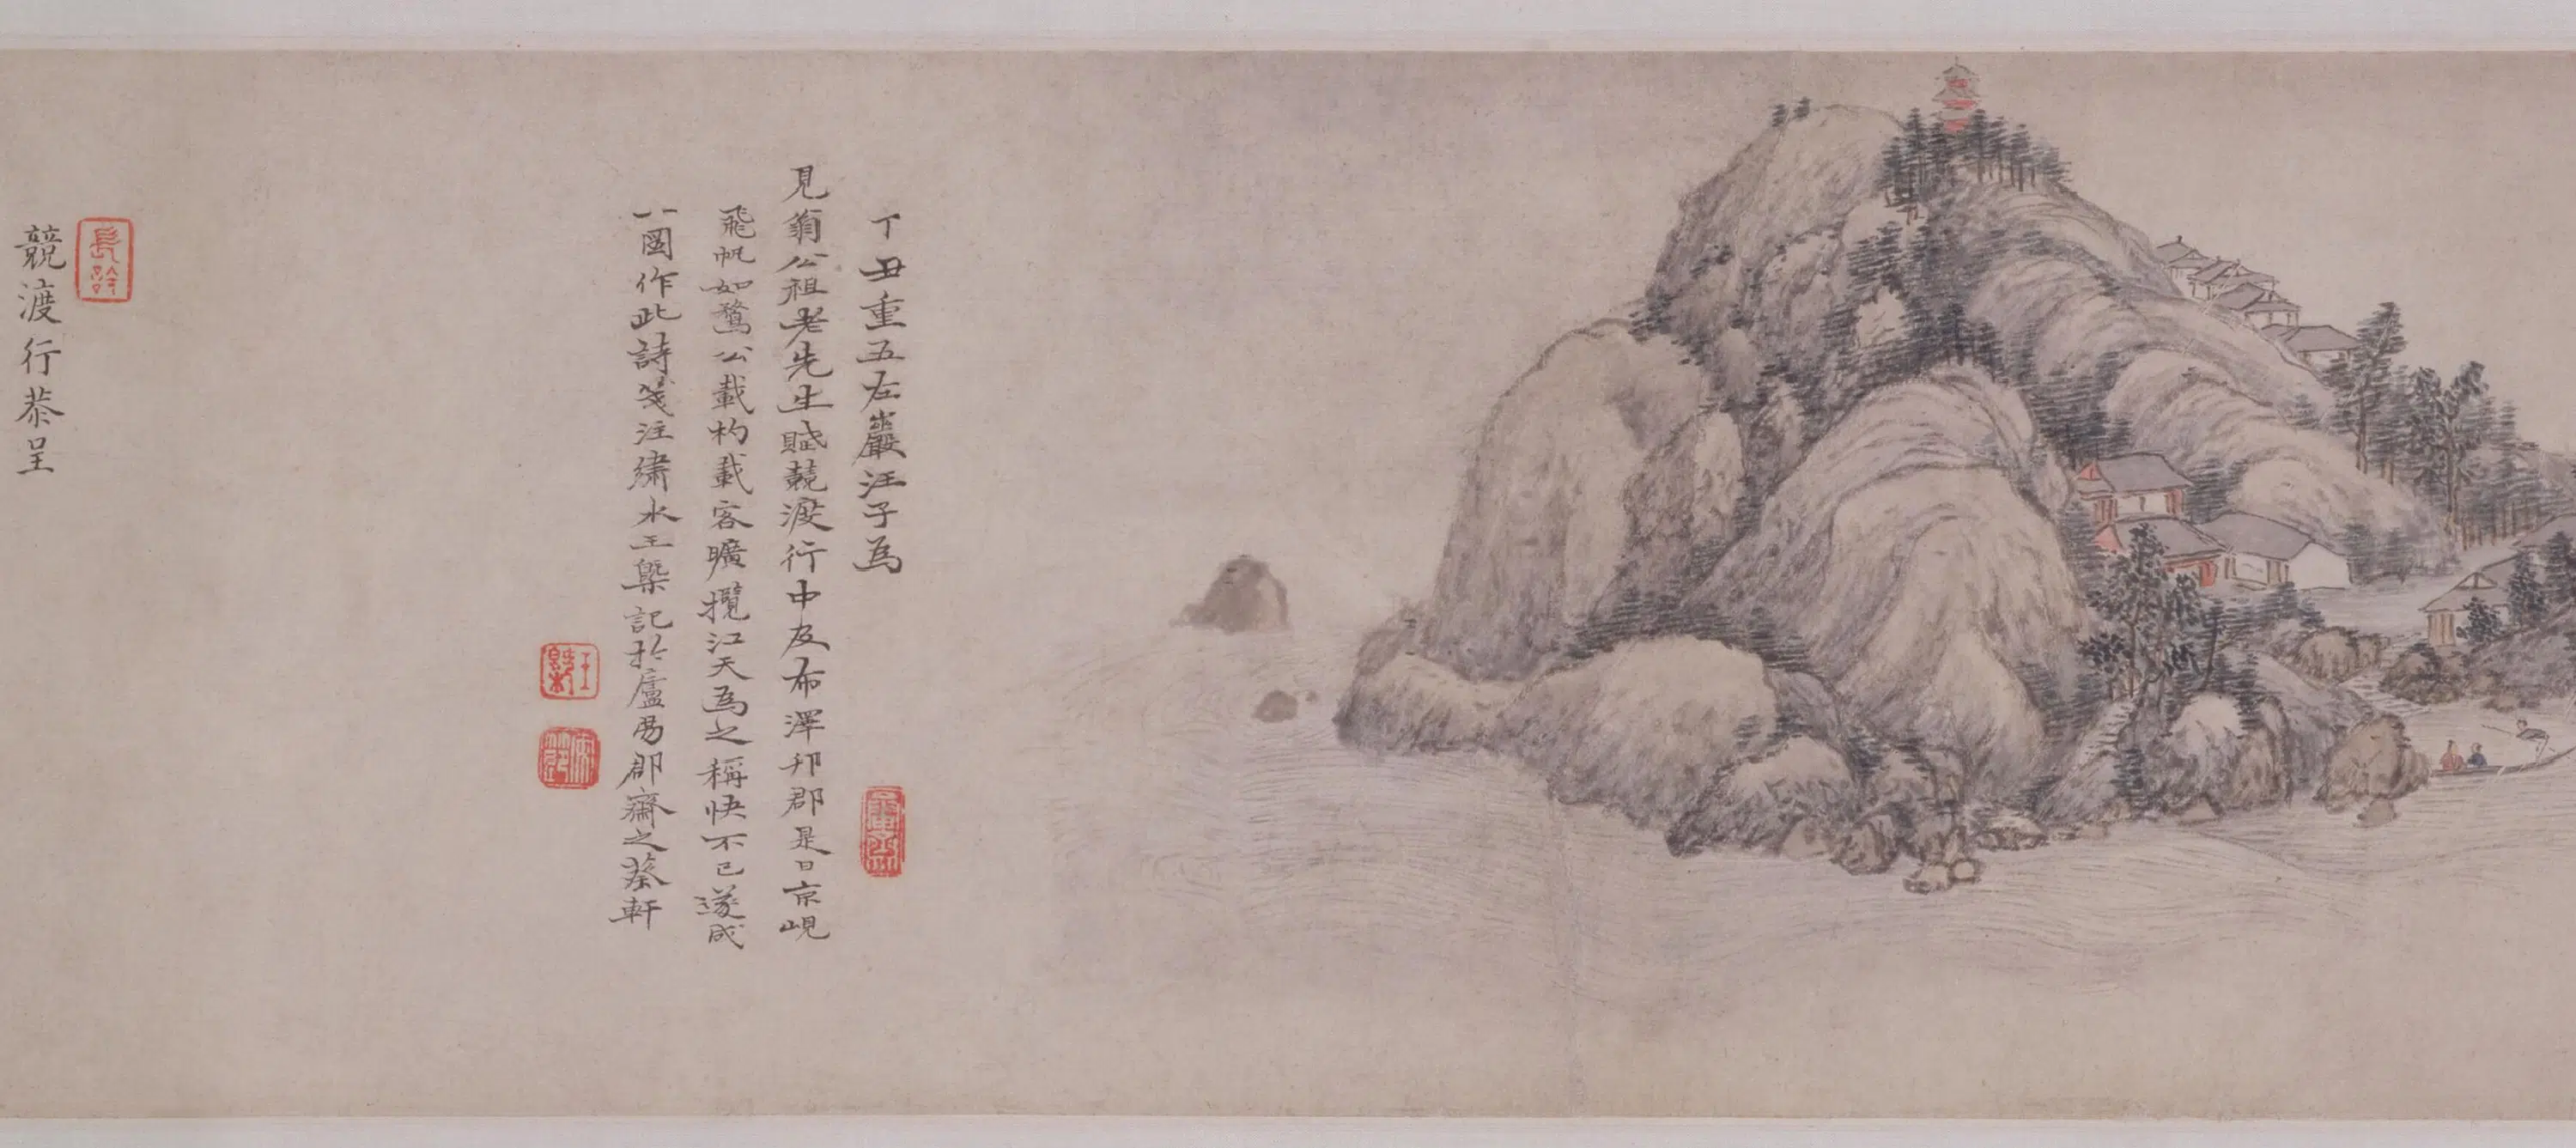 丁丑重五左巖汪子為
見翁公祖老先生賦競渡行中及布澤邗郡是日京峴
飛帆如鶩公載杓載客曠攬江天為之稱快不已遂成
一圖作此詩箋注繡水王槩記於廬易郡齋之葵軒
王槩
長齡
競渡行恭呈